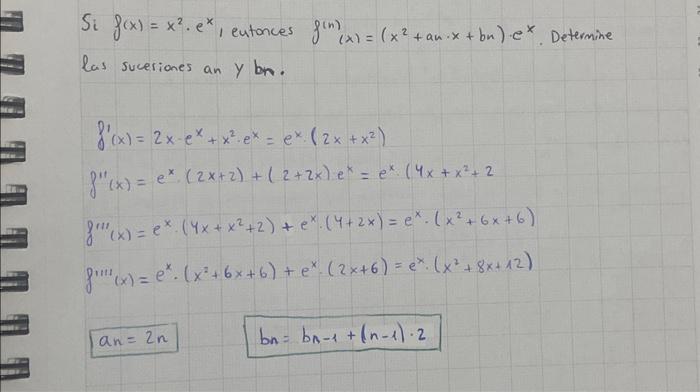 Si f(x) = x² · eˣ, entonces f⁽ⁿ⁾(x) = (x² + an · x + bn) · eˣ. Determine
las sucesiones an y bn.
f'(x) = 2x · eˣ + x² · eˣ = eˣ · (2x + x²)
f''(x) = eˣ · (2x+2) + (2+2x) · eˣ = eˣ · (4x + x² + 2
f'''(x) = eˣ · (4x + x² + 2) + eˣ · (4 + 2x) = eˣ · (x² + 6x + 6)
f''''(x) = eˣ · (x² + 6x + 6) + eˣ · (2x + 6) = eˣ · (x² + 8x + 12)
an = 2n
bn = bn-1 + (n-1) · 2